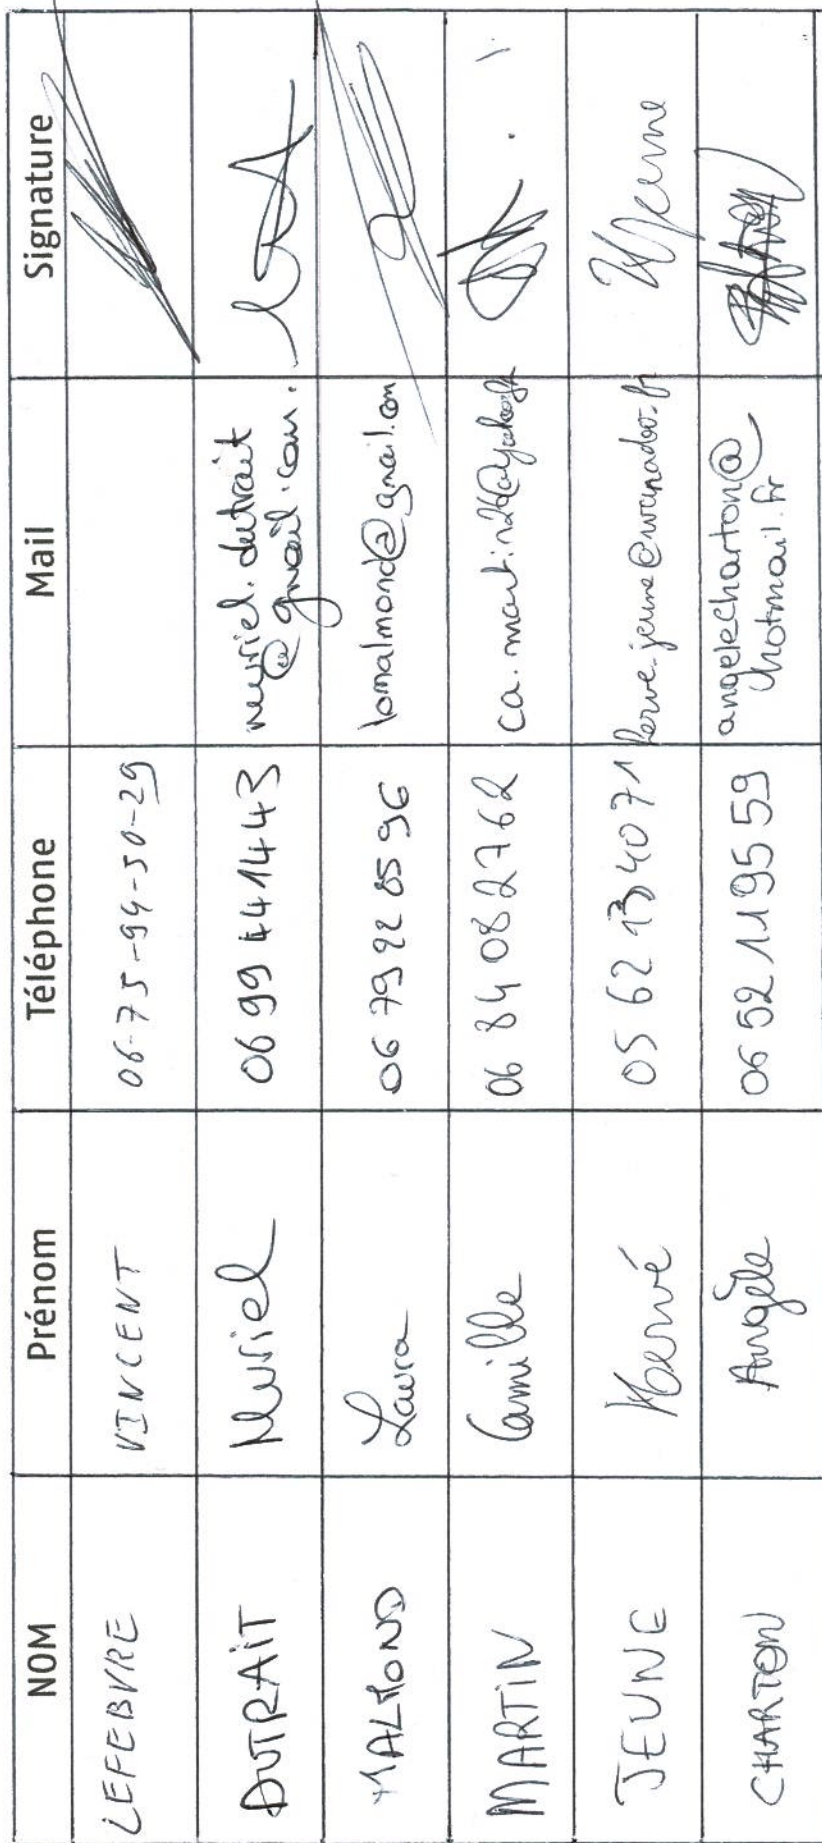 NOM Prénom Téléphone Mail Signature
LEFEBVRE VINCENT 06-75-94-50-29
DUTRAIT Muriel 06 99 44 14 43 muriel.dutrait
@gmail.com.
MALMOND Laura 06 79 22 85 96 lomalmond@gmail.com
MARTIN Camille 06 84 08 27 62 ca.martin26@yahoo.fr
JEUNE Hervé 05 62 13 40 71 herve.jeune@wanadoo.fr
CHARTON Angèle 06 52 11 95 59 angelecharton@
hotmail.fr